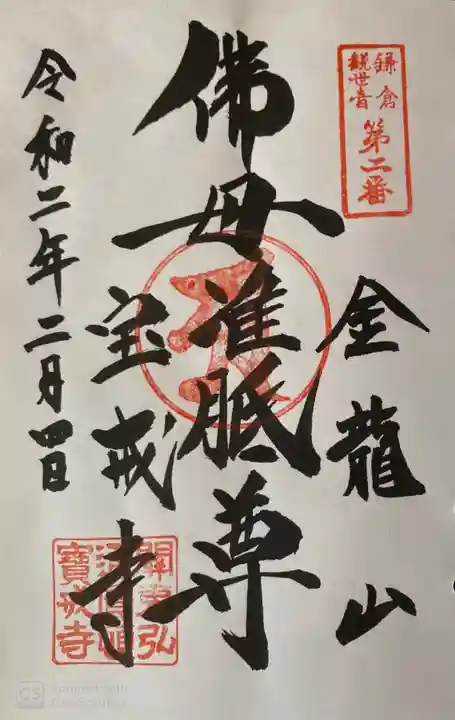 鎌倉
観世音
第二番
金龍山
佛母准胝尊
宝戒寺
令和二年二月四日
寶戒寺
CS Scanned with
CamScanner